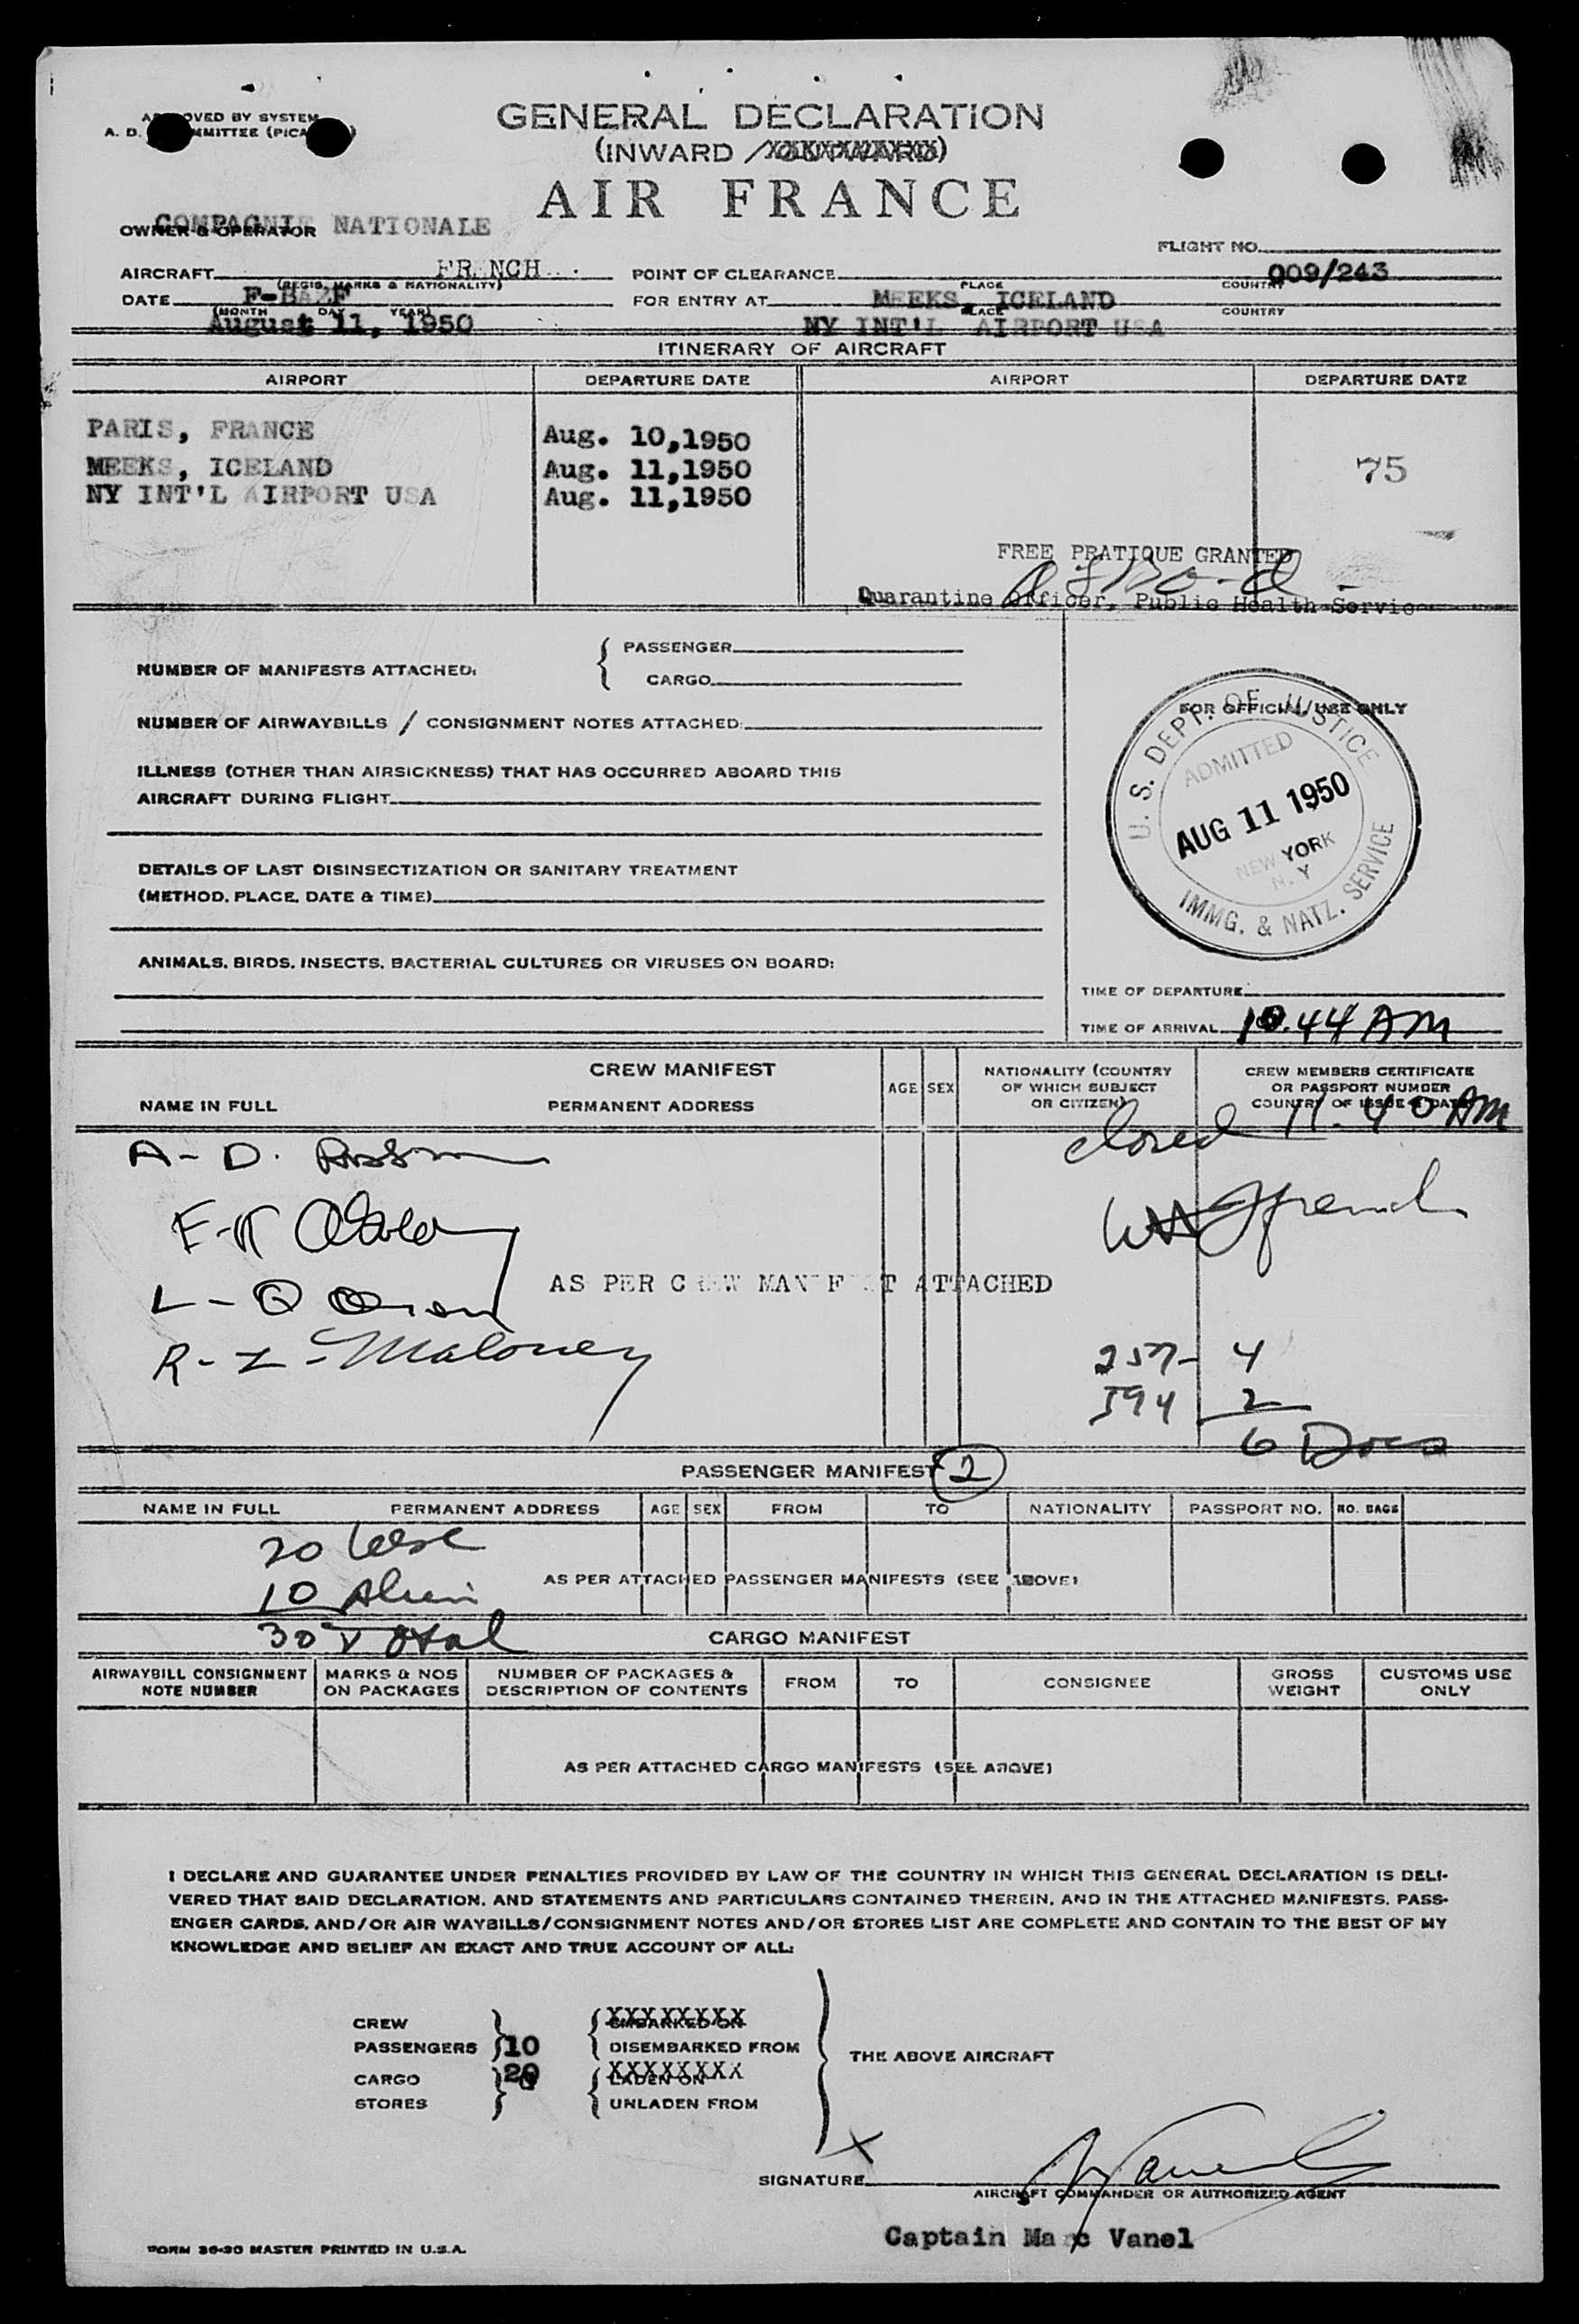 APPROVED BY SYSTEM
GENERAL DECLARATION
(INWARD / XXXXXXXXX)
AIR FRANCE
COMPAGNIE NATIONALE
OWNER & OPERATOR
FLIGHT NO.
009/243
AIRCRAFT FRENCH
(REGIS. MARKS & NATIONALITY)
F-BAZF
POINT OF CLEARANCE
PLACE
COUNTRY
MEEKS, ICELAND
DATE
(MONTH DAY YEAR)
August 11, 1950
FOR ENTRY AT
PLACE
COUNTRY
NY INT'L AIRPORT USA
ITINERARY OF AIRCRAFT
AIRPORT DEPARTURE DATE AIRPORT DEPARTURE DATE
PARIS, FRANCE Aug. 10,1950
MEEKS, ICELAND Aug. 11,1950 75
NY INT'L AIRPORT USA Aug. 11,1950
FREE PRATIQUE GRANTED
Quarantine Officer, Public Health Servic
NUMBER OF MANIFESTS ATTACHED: { PASSENGER
CARGO
NUMBER OF AIRWAYBILLS / CONSIGNMENT NOTES ATTACHED:
ILLNESS (OTHER THAN AIRSICKNESS) THAT HAS OCCURRED ABOARD THIS
AIRCRAFT DURING FLIGHT
DETAILS OF LAST DISINSECTIZATION OR SANITARY TREATMENT
(METHOD, PLACE, DATE & TIME)
ANIMALS, BIRDS, INSECTS, BACTERIAL CULTURES OR VIRUSES ON BOARD:
FOR OFFICIAL USE ONLY
U. S. DEPT. OF JUSTICE
ADMITTED
AUG 11 1950
NEW YORK
N. Y
IMMG. & NATZ. SERVICE
TIME OF DEPARTURE
TIME OF ARRIVAL 10.44 AM
CREW MANIFEST
NAME IN FULL PERMANENT ADDRESS AGE SEX
NATIONALITY (COUNTRY
OF WHICH SUBJECT
OR CITIZEN)
CREW MEMBERS CERTIFICATE
OR PASSPORT NUMBER
COUNTRY OF ISSUE & DATE
closed 11.40 AM
A - D.
L - Q
AS PER CREW MANIFEST ATTACHED
R - Z - Maloney
257- 4
594 2
6 Docs
PASSENGER MANIFEST 2
NAME IN FULL PERMANENT ADDRESS AGE SEX FROM TO NATIONALITY PASSPORT NO. NO. BAGS
20
10
AS PER ATTACHED PASSENGER MANIFESTS (SEE ABOVE)
30 Total
CARGO MANIFEST
AIRWAYBILL CONSIGNMENT
NOTE NUMBER
MARKS & NOS
ON PACKAGES
NUMBER OF PACKAGES &
DESCRIPTION OF CONTENTS
FROM TO CONSIGNEE
GROSS
WEIGHT
CUSTOMS USE
ONLY
AS PER ATTACHED CARGO MANIFESTS (SEE ABOVE)
I DECLARE AND GUARANTEE UNDER PENALTIES PROVIDED BY LAW OF THE COUNTRY IN WHICH THIS GENERAL DECLARATION IS DELI-
VERED THAT SAID DECLARATION, AND STATEMENTS AND PARTICULARS CONTAINED THEREIN, AND IN THE ATTACHED MANIFESTS, PASS-
ENGER CARDS, AND/OR AIR WAYBILLS/CONSIGNMENT NOTES AND/OR STORES LIST ARE COMPLETE AND CONTAIN TO THE BEST OF MY
KNOWLEDGE AND BELIEF AN EXACT AND TRUE ACCOUNT OF ALL:
CREW XXXXXXXX
EMBARKED ON
PASSENGERS 10 DISEMBARKED FROM
THE ABOVE AIRCRAFT
CARGO 20 XXXXXXXX
LADEN ON
STORES UNLADEN FROM
X
SIGNATURE
AIRCRAFT COMMANDER OR AUTHORIZED AGENT
Captain Marc Vanel
FORM 36-20 MASTER PRINTED IN U.S.A.